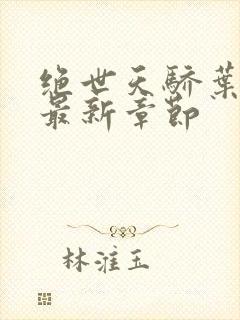 绝世天骄葉
最新章節
林淮玉